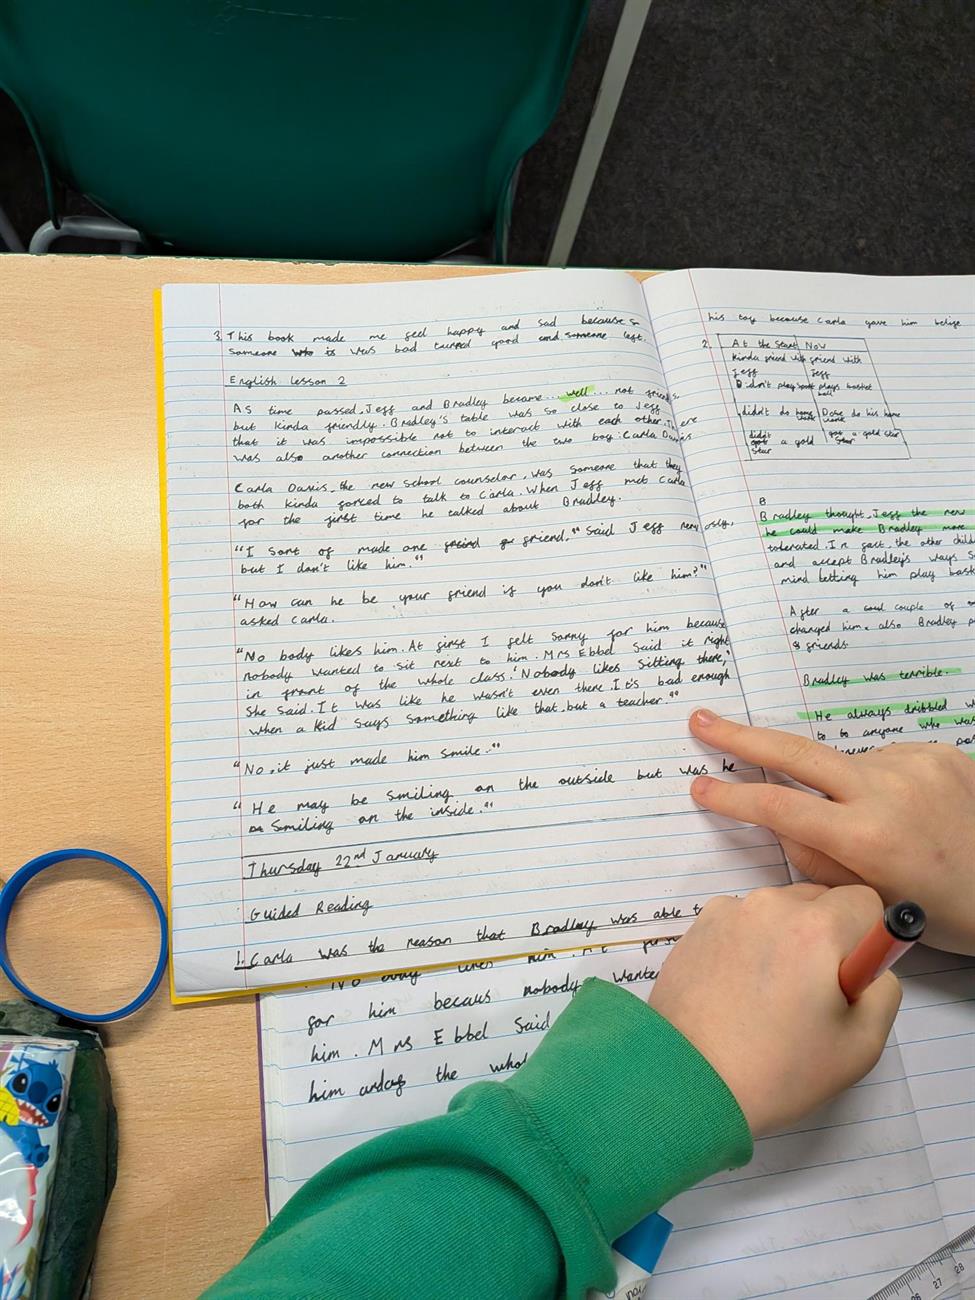 3. This book made me feel happy and sad because
someone who is was bad turned good and someone left.
English lesson 2
As time passed, Jeff and Bradley became... well... not friends
but kinda friendly. Bradley's table was so close to Jeff
that it was impossible not to interact with each other. There
was also another connection between the two boy: Carla Davis
Carla Davis, the new school counselor, was someone that they
both kinda forced to talk to Carla. When Jeff met Carla
for the first time he talked about Bradley.
"I sort of made one friend friend," said Jeff nervously,
but I don't like him."
"How can he be your friend if you don't like him?"
asked Carla.
"No body likes him. At first I felt sorry for him because
nobody wanted to sit next to him. Mrs Ebbel said it right
in front of the whole class. 'Nobody likes sitting there,'
she said. It was like he wasn't even there. It's bad enough
when a kid says something like that, but a teacher."
"No, it just made him smile."
"He may be smiling on the outside but was he
smiling on the inside."
Thursday 22nd January
Guided Reading
1. Carla was the reason that Bradley was able
his toy because Carla gave him
2.
At the start Now
kinda friend with friend with
Jeff Jeff
Didn't play sport plays basket
ball
didn't do home work Dose do his home
work
didn't got a gold star got a gold star
8
Bradley thought Jeff the new
he could make Bradley more
tolerated. In fact, the other
and accept Bradley's ways
mind letting him play
After a couple of
changed him, also Bradley
friends
Bradley was terrible.
He always dribbled
to to anyone who was
No body likes him. At
for him becaus nobody wante
him. Mrs Ebbel said
him the whol
26 27 28